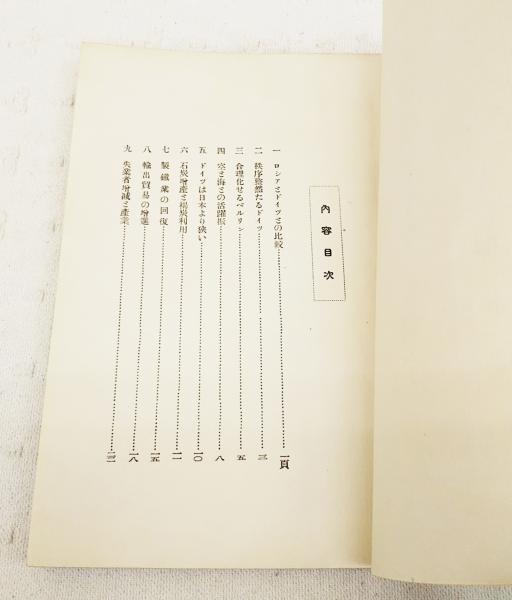 內容目次
一 ロシアとドイツとの比較 一頁
二 秩序整然たるドイツ 三
三 合理化せるベルリン 五
四 空と海との活躍振 八
五 ドイツは日本より狹い 一〇
六 石炭增產と褐炭利用 一一
七 製鐵業の回復 一五
八 輸出貿易の增進 一八
九 失業者增減と產業